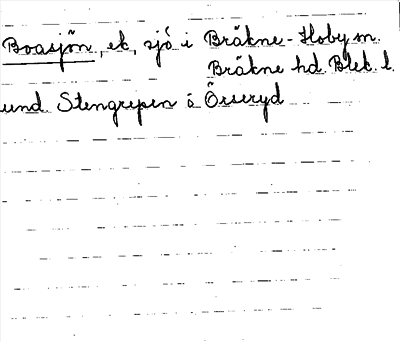 Boasjön, ek, sjö i Bräkne-Hoby sn.
Bräkne hd Blek. l.
und. Stengrepen o Örseryd